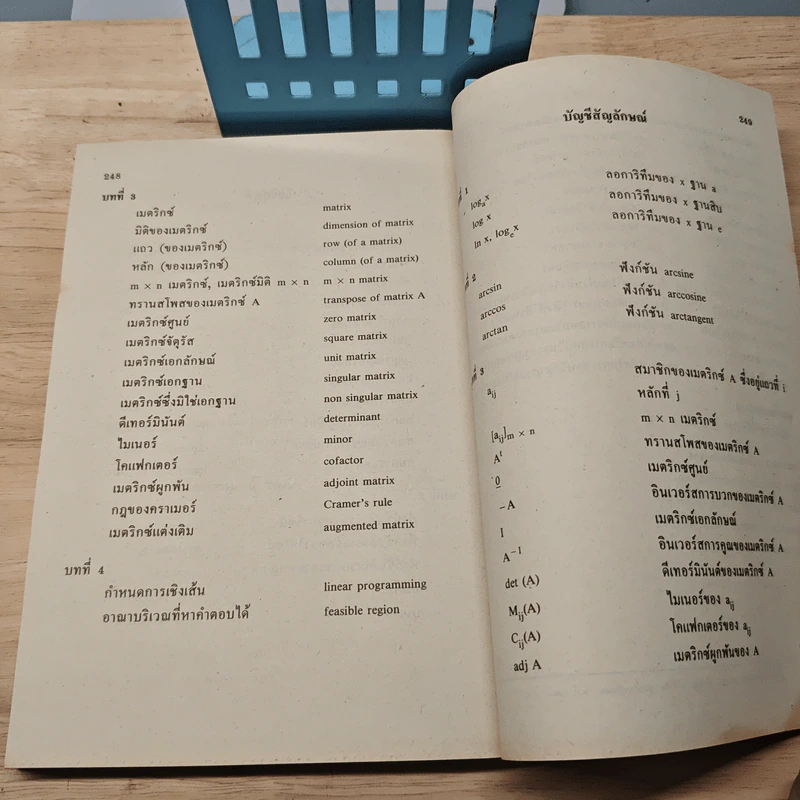 248
บทที่ 3
เมตริกซ์ matrix
มิติของเมตริกซ์ dimension of matrix
แถว (ของเมตริกซ์) row (of a matrix)
หลัก (ของเมตริกซ์) column (of a matrix)
m × n เมตริกซ์, เมตริกซ์มิติ m × n m × n matrix
ทรานสโพสของเมตริกซ์ A transpose of matrix A
เมตริกซ์ศูนย์ zero matrix
เมตริกซ์จัตุรัส square matrix
เมตริกซ์เอกลักษณ์ unit matrix
เมตริกซ์เอกฐาน singular matrix
เมตริกซ์ซึ่งมิใช่เอกฐาน non singular matrix
ดีเทอร์มินันต์ determinant
ไมเนอร์ minor
โคแฟกเตอร์ cofactor
เมตริกซ์ผูกพัน adjoint matrix
กฎของคราเมอร์ Cramer's rule
เมตริกซ์แต่งเติม augmented matrix
บทที่ 4
กำหนดการเชิงเส้น linear programming
อาณาบริเวณที่หาคำตอบได้ feasible region
บัญชีสัญลักษณ์ 249
ที่ 1
logₐx ลอการิทึมของ x ฐาน a
log x ลอการิทึมของ x ฐานสิบ
ln x, logₑx ลอการิทึมของ x ฐาน e
ที่ 2
arcsin ฟังก์ชัน arcsine
arccos ฟังก์ชัน arccosine
arctan ฟังก์ชัน arctangent
ที่ 3
aᵢⱼ สมาชิกของเมตริกซ์ A ซึ่งอยู่แถวที่ i
หลักที่ j
[aᵢⱼ]m × n m × n เมตริกซ์
Aᵗ ทรานสโพสของเมตริกซ์ A
0̲ เมตริกซ์ศูนย์
−A อินเวอร์สการบวกของเมตริกซ์ A
I เมตริกซ์เอกลักษณ์
A⁻¹ อินเวอร์สการคูณของเมตริกซ์ A
det (A) ดีเทอร์มินันต์ของเมตริกซ์ A
Mᵢⱼ(A) ไมเนอร์ของ aᵢⱼ
Cᵢⱼ(A) โคแฟกเตอร์ของ aᵢⱼ
adj A เมตริกซ์ผูกพันของ A